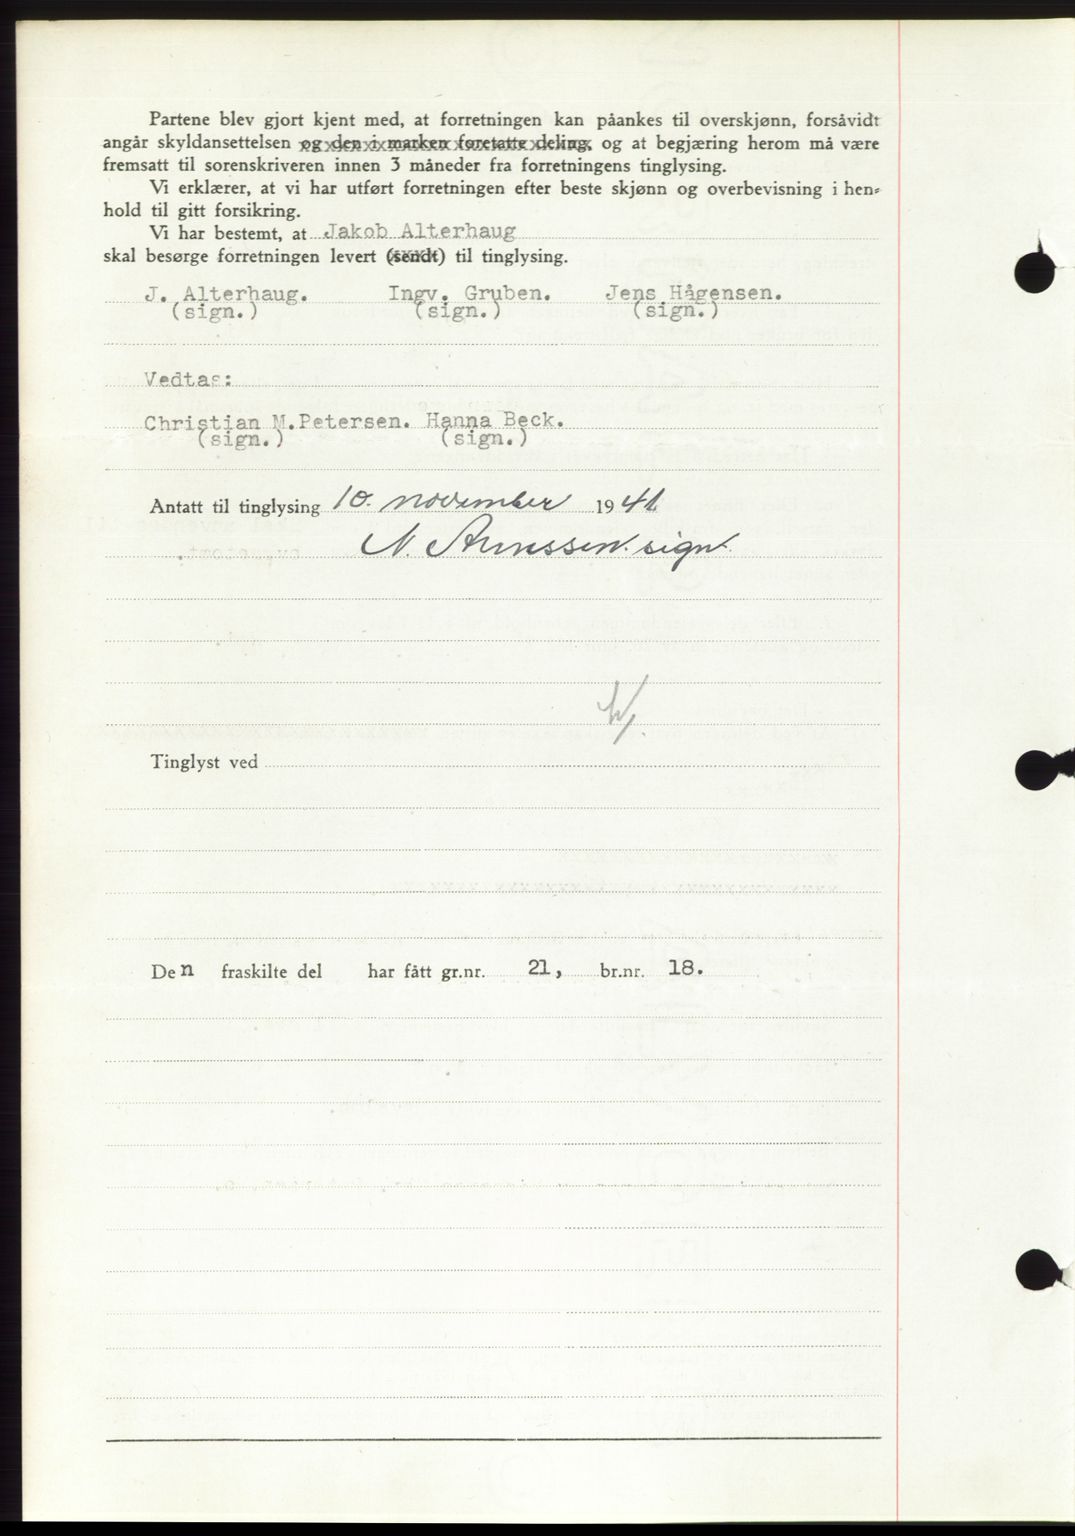 Partene blev gjort kjent med, at forretningen kan påankes til overskjønn, forsåvidt
angår skyldansettelsen og den i marken foretatte deling, og at begjæring herom må være
fremsatt til sorenskriveren innen 3 måneder fra forretningens tinglysing.
Vi erklærer, at vi har utført forretningen efter beste skjønn og overbevisning i hen-
hold til gitt forsikring.
Vi har bestemt, at Jakob Alterhaug
skal besørge forretningen levert (sendt) til tinglysing.
J. Alterhaug. Ingv. Gruben. Jens Hågensen.
(sign.) (sign.) (sign.)
Vedtas:
Christian M.Petersen. Hanna Beck.
(sign.) (sign.)
Antatt til tinglysing 10. november 1941
N. sign.
Tinglyst ved
Den fraskilte del har fått gr.nr. 21, br.nr. 18.